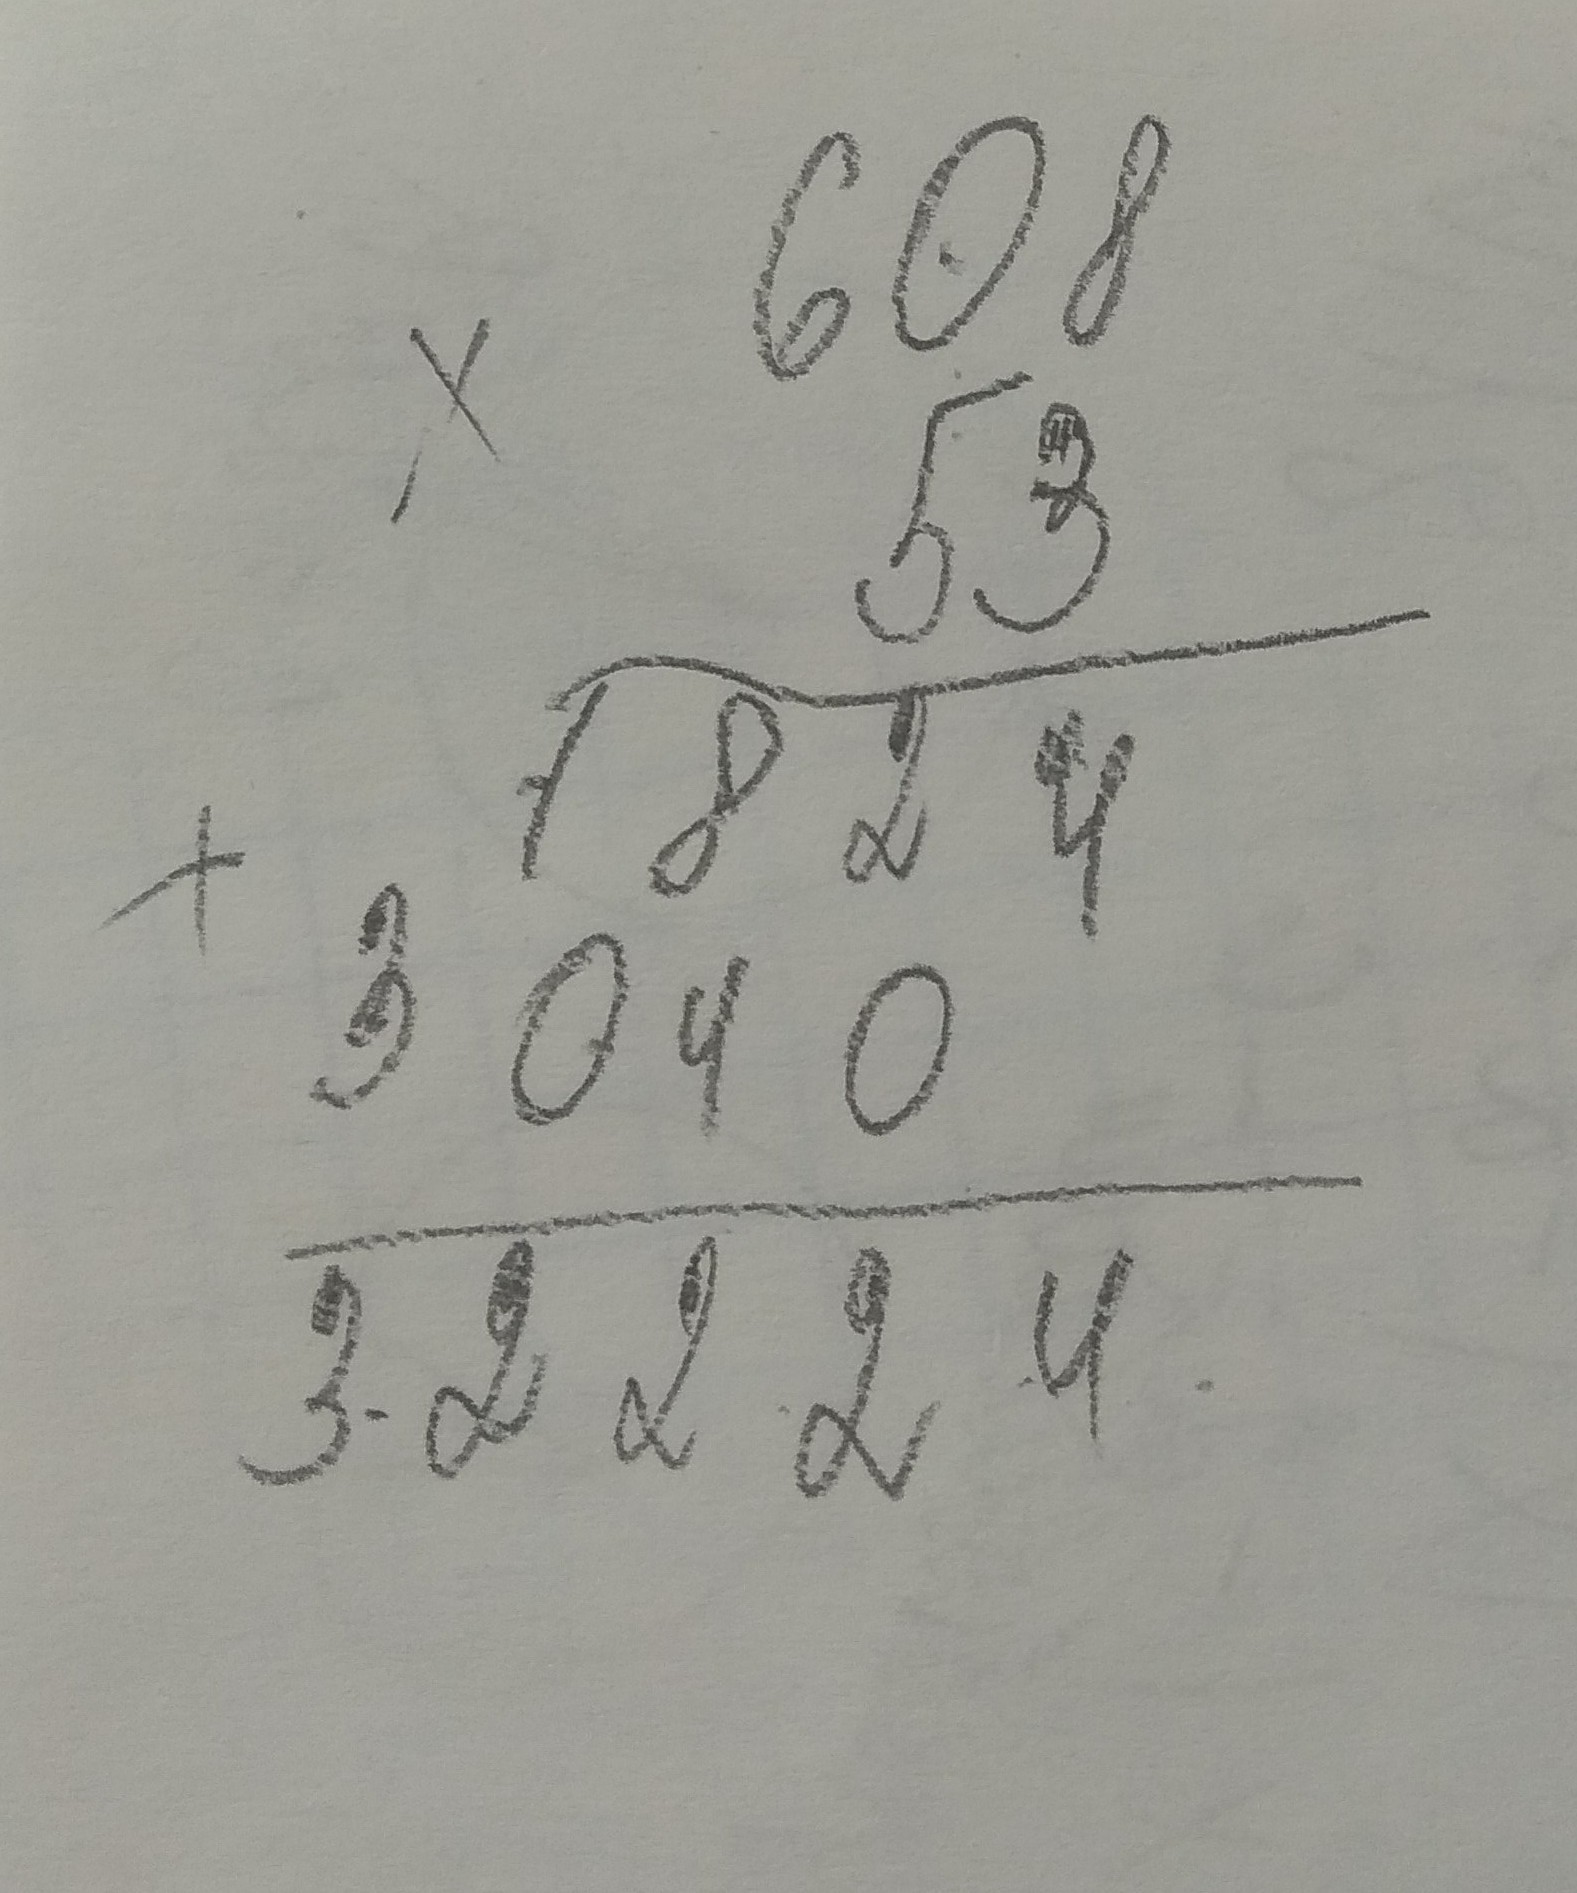 608
×
53
1824
+
3040
32224